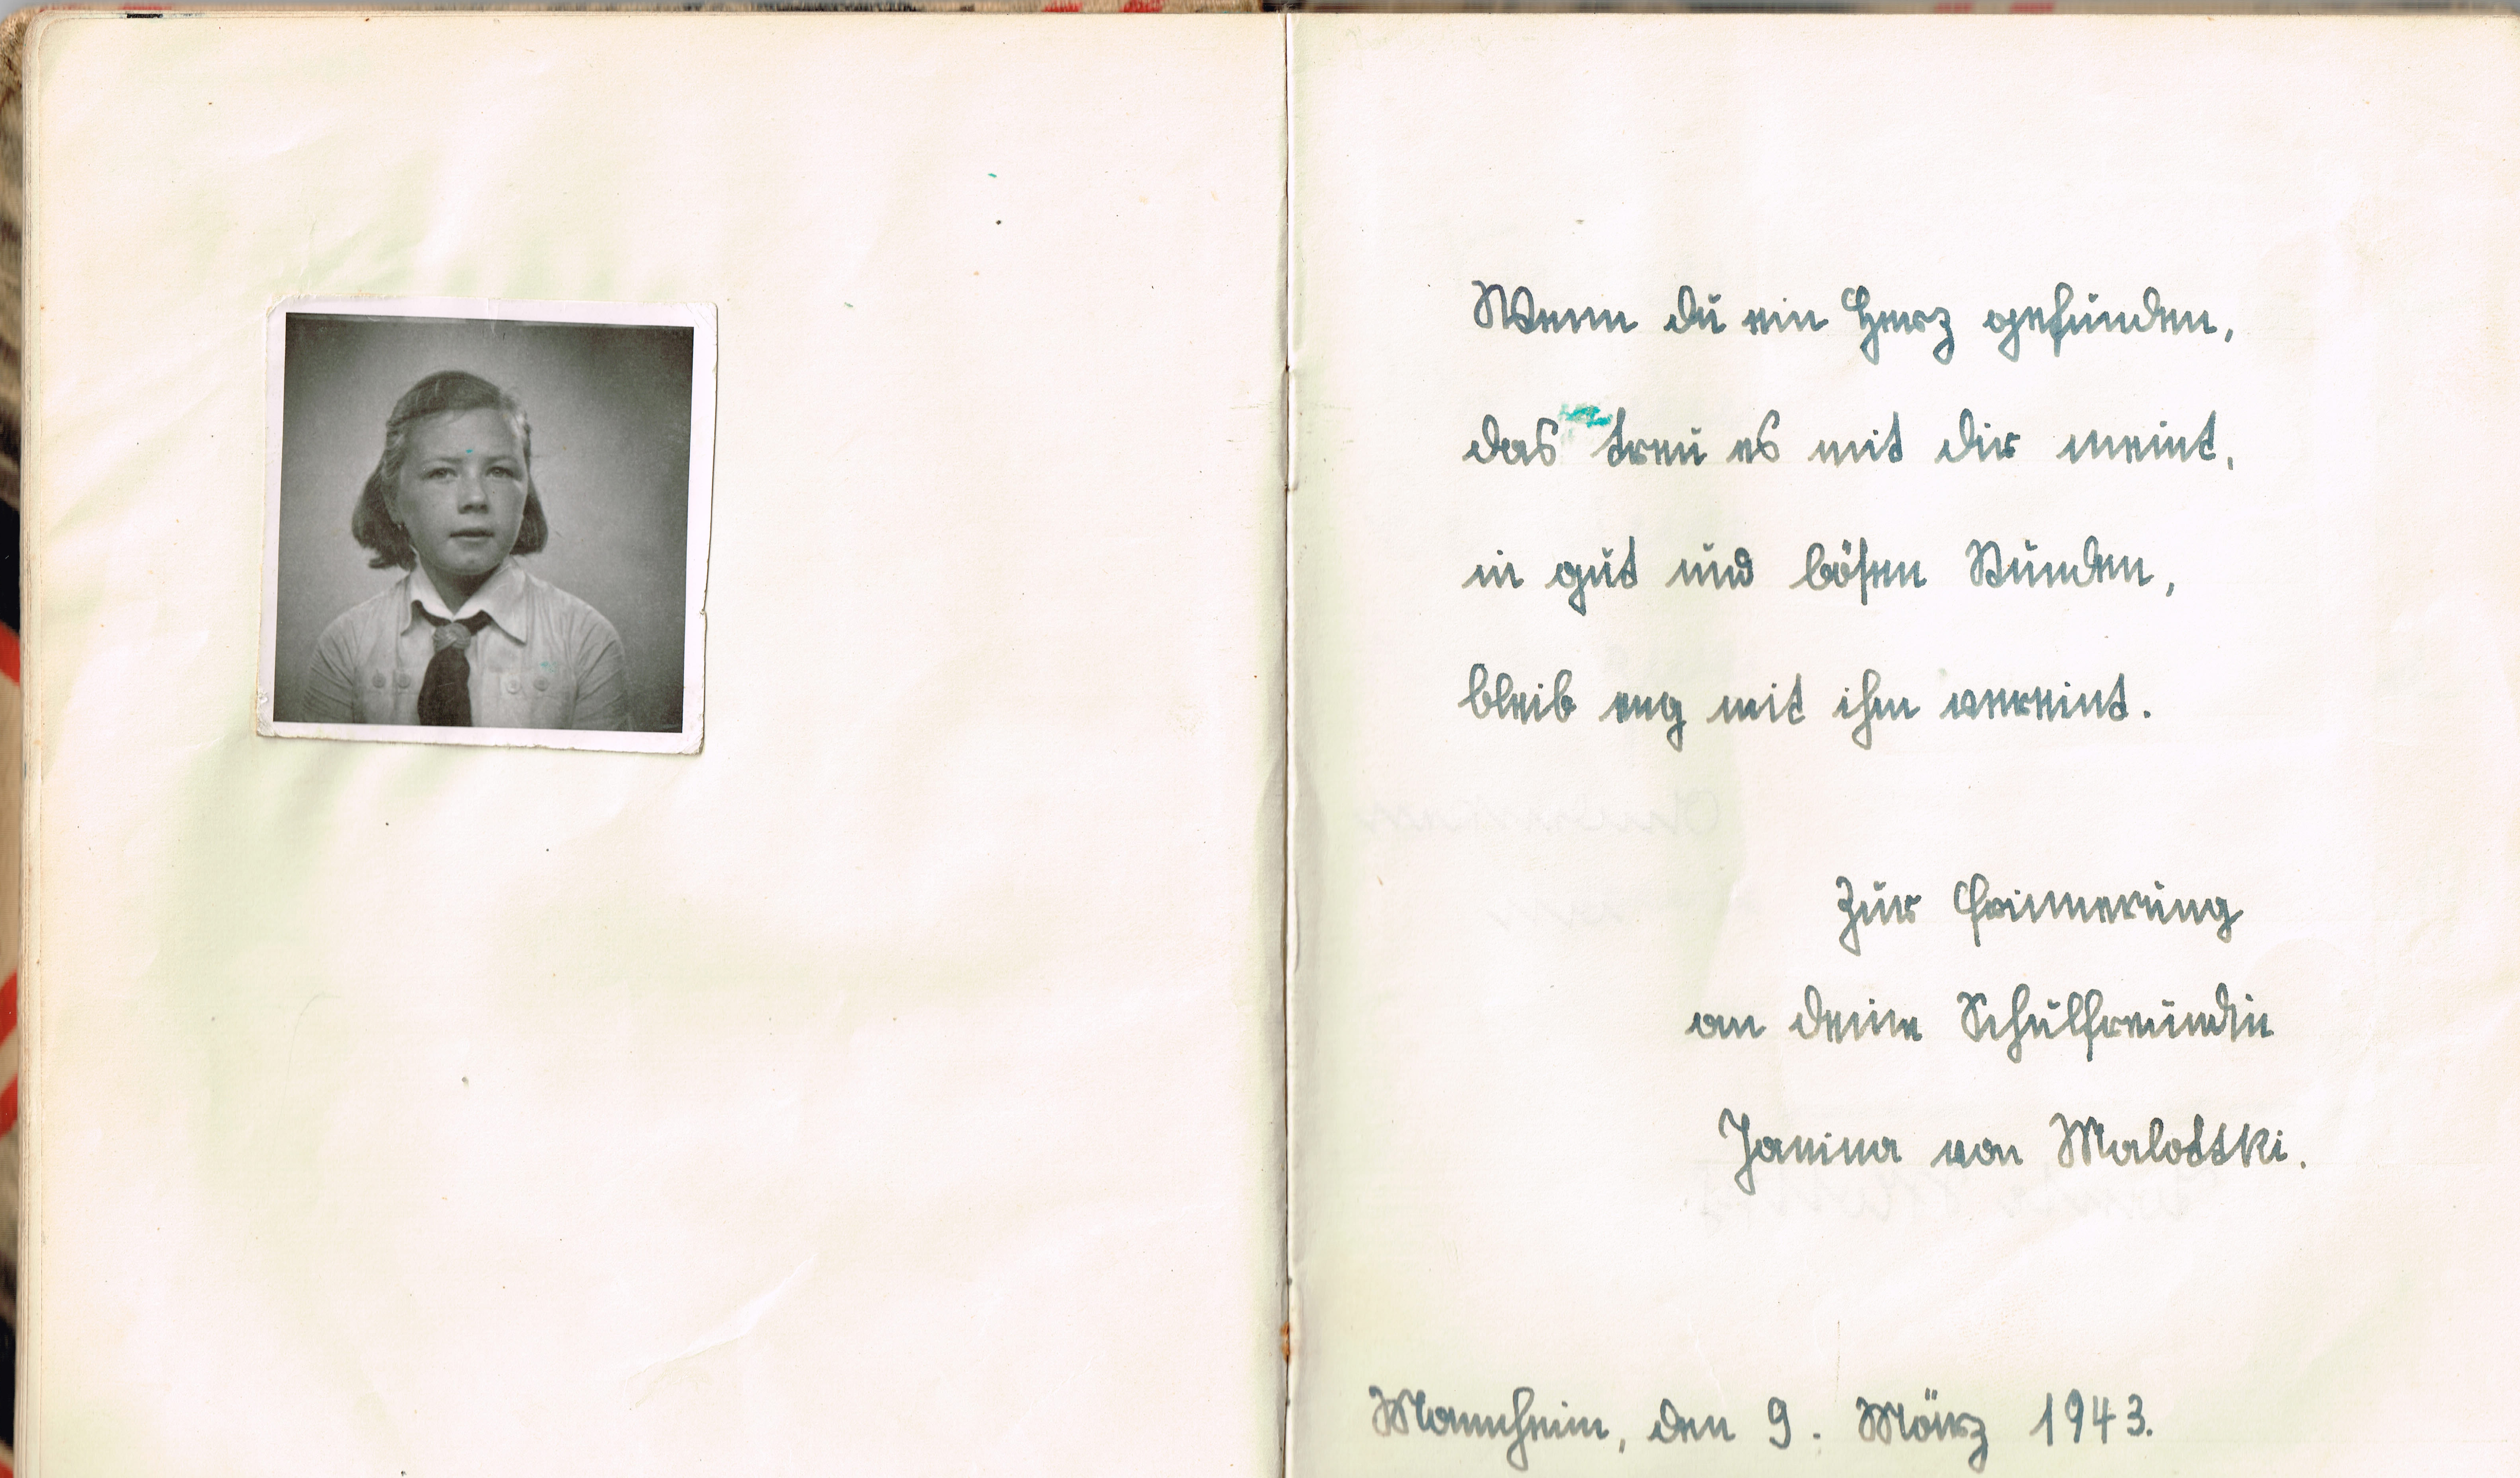 Wenn du ein Herz gefunden,
das treu es mit dir meint,
in gut und bösen Stunden,
bleib eng mit ihm vereint.
Zur Erinnerung
an deine Schulfreundin
Janina von Malottki.
Mannheim, den 9. März 1943.